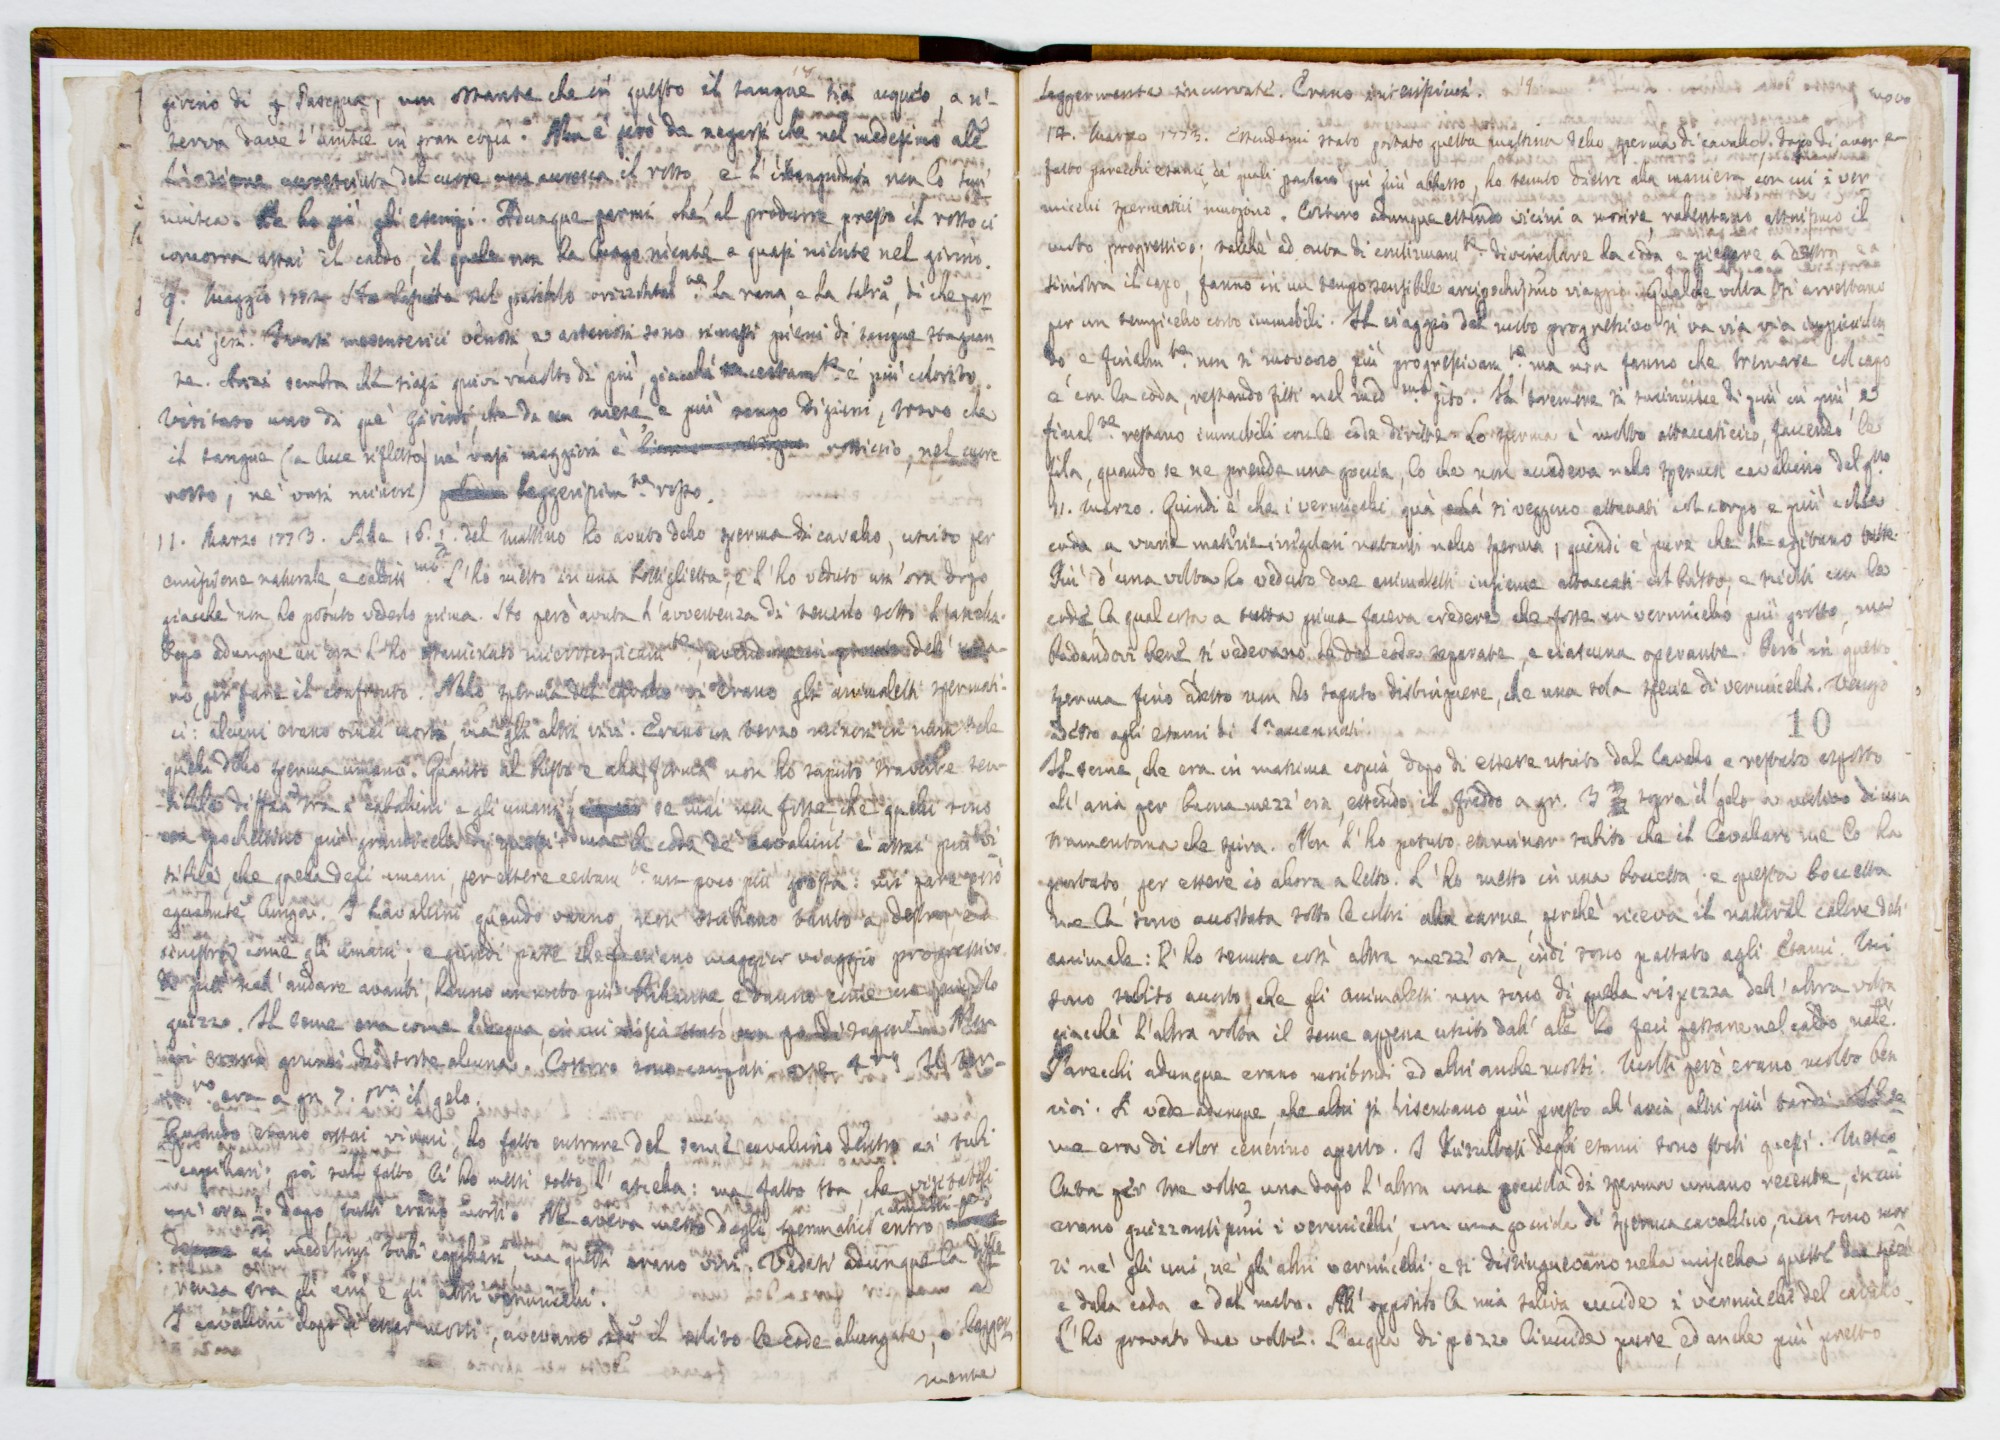 girino di q. Pasqua, non ostante che in questo il sangue sia acqueo, a ri-
serva dove s'unisce in gran copia. Non è però da negarsi che nel medesimo alle
accresciuta del cuore non accresca il rosso, e l' non lo
nuisca. Ne ho più gli esempi. Adunque parmi, che al produrre presto il rosso ci
concorra assai il caldo, il quale non ha luogo niente e quasi niente nel girino.
9. Maggio 1772. Sta sul la rana, e la salra, di che par-
lai jeri. I vasi mesenterici venosi, e arteriosi sono rimasti pieni di sangue stagnan-
te. Anzi sembra che siasi quivi raccolto di più, giacchè certam.te è più colorito.
Visitato uno di que' girini, che da un mese e più tengo digiuni, trovo che
il sangue (a luce riflessa) ne' vasi maggiori è rossiccio, nel cuore
rosso, ne' vasi minori leggerissim.te rosso.
11. Marzo 1773. Alle 16. 1/2. del mattino ho avuto dello sperma di cavallo, uscito per
emissione naturale e L'ho messo in una bottiglietta, e l'ho veduto un'ora dopo
giacchè non ho potuto vederlo prima. Ho però avuta l'avvertenza di tenerlo sotto l'ascella.
Dopo adunque un'ora l'ho esaminato microscopicam.te, dell' uma-
no, per fare il confronto. Nello sperma del cavallo vi erano gli animaletti spermati-
ci: alcuni erano quasi morti, ma gli altri vivi. Erano un terzo minori in num. che
quelli dello sperma umano. Quanto al resto e alla forma non ho saputo trovarle sen-
sibile diffza tra i cavallini e gli umani, se mai non fosse, che quelli sono
un pochettino più grandicelli di questi: ma la coda de' cavallini è assai più vi
sibile, che quella degli umani, per essere certam.te un poco più grossa: mi pare però
egualmte lunga. I cavallini quando vanno, non oscillano tanto a destra, ed
sinistra come gli umani; e quindi pare che facciano maggior viaggio progressivo.
nell' andare avanti, hanno un moto più
guizzo. Il seme era come l'acqua, in cui siasi
grumi di sorte alcuna. Costoro sono campati ore 4 Il ter-
m.ro era a gr. 7. sopra il gelo.
Quando erano assai vivaci, ho fatto entrare del seme cavallino dentro ai tubi
capillari; poi tal fatto li ho messi sotto l'ascella: ma fatto sta che visitatili
un'ora dopo tutti erano morti. Ne aveva messo degli spermatici umani pure entro
ai medesimi tubi capillari, ma questi erano vivi. Vedesi adunque la diffe
renza tra gli uni, e gli altri vermicelli.
I cavallini dopo di esser morti, avevano il solito le code allungate, o legger
mente
19
leggermente incurvate. Erano
novo
14. Marzo 1773. Essendomi stato portato questa mattina dello sperma di cavallo. dopo di aver
fatto parecchi esami, de' quali parlerò quì più abbasso, ho tenuto dietro alla maniera, con cui i ver
micelli spermatici muojono. Costoro adunque essendo vicini a morire, rallentano il
moto progressivo; talchè ad onta di continuam.te divincolare la coda e piegare a destra e a
sinistra il capo, fanno in un tempo sensibile viaggio. Qualche volta si arrestano
per un tempicello corto immobili. Il viaggio del moto progressivo si va via via impicciolen-
do, e finalm.te non si movono più progressivam.te, ma non fanno che tremare col capo
e con la coda, restando fitti nel med.mo sito. Il tremore si sminuisce di più in più, e
final.te restano immobili con le code diritte. Lo sperma è molto attaccaticcio, facendo le
fila, quando se ne prende una goccia, lo che non accadeva nello sperma cavallino del gno
11. Marzo. Quindi è che i vermicelli quà, e là si veggono attaccati col corpo e più colla
coda a varie materie irregolari natanti nello sperma, quindi è pure che
Più d'una volta ho veduto due animaletti insieme attaccati col busto, e sciolti con le
code, la qual cosa a tutta prima faceva credere che fosse un vermicello più grosso, ma
badandovi bene si vedevano le due code separate, e ciascuna operante. Però in questo
sperma fino adesso non ho saputo distinguere, che una sola specie di vermicelli. Vengo
adesso agli esami di sopra accennati.
10
Il seme, che era in massima copia, dopo di essere uscito dal Cavallo, è restato esposto
all'aria per buona mezz'ora, essendo il freddo a gr. 3 sopra il gelo a motivo di una
tramontana che spira. Non l'ho potuto esaminar subito che il Cavallaro me lo ha
portato, per essere io allora a letto. L'ho messo in una boccetta, e questa boccetta
me la sono accostata sotto le coltri alla carne, perchè riceva il natural calore dell'
animale: L'ho tenuta così altra mezz'ora, indi sono passato agli Esami. Mi
sono subito accorto, che gli animaletti non sono di quella vispezza dell'altra volta
giacchè l'altra volta il seme appena uscito dall' ale lo feci passare nel caldo nale.
Parecchi adunque erano moribondi ed altri anche morti. Molti però erano molto ben
vivi. Si vede adunque, che altri si risentano più presto all'aria, altri più tardi. Il se-
me era di color cenerino aperto. I risultati degli esami sono stati questi. Mesco
lata per tre volte, una dopo l'altra una gocciola di sperma umano recente, in cui
erano guizzantissimi i vermicelli, con una gocciola di sperma cavallino, non sono mor
ti nè gli uni, nè gli altri vermicelli; e si distinguevano nella mischia queste due spezie
e dalla coda e dal moto. All'opposito la mia saliva uccide i vermicelli del cavallo.
L'ho provato due volte. L'acqua di pozzo li uccide pure, ed anche più presto